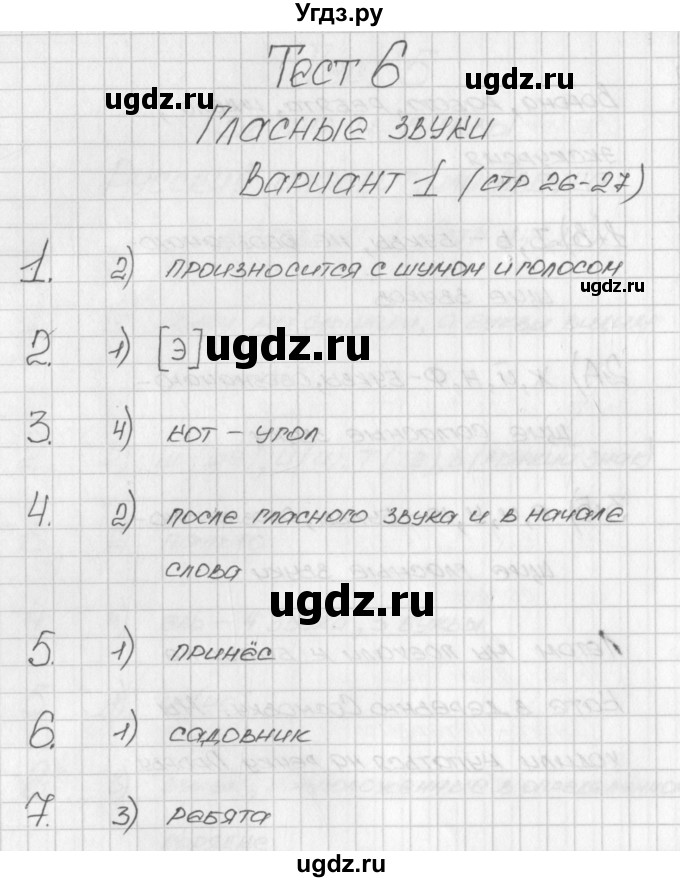 Угдз.ру
Тест 6
ugdz.ru
ugdz.ru
Гласные звуки
Вариант 1 (стр 26-27)
1. 2) произносится с шумом и голосом
ugdz.ru
2. 1) [э]
ugdz.ru
3. 4) кот – угол
4. 2) после гласного звука и в начале
слова
ugdz.ru
5. 1) принёс
6. 1) садовник
7. 3) ребята
ugdz.ru
ugdz.ru